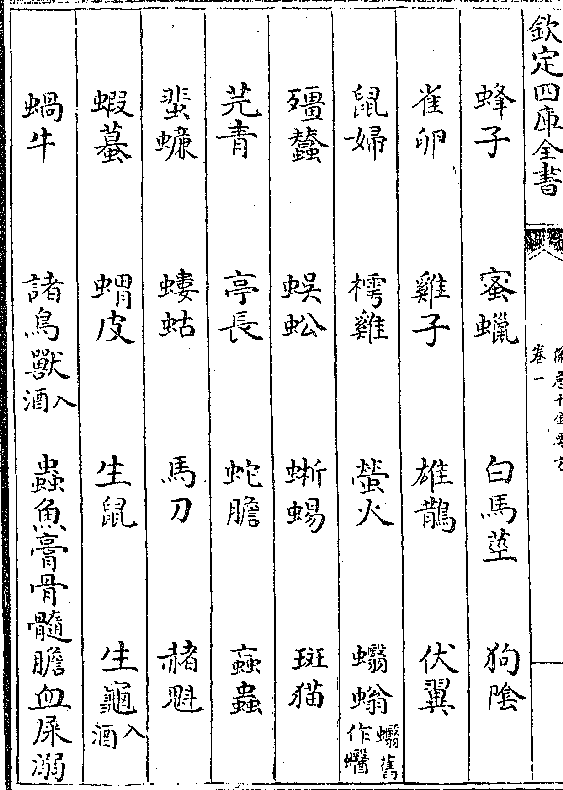 欽定四庫全書
備急千金要方
卷一
蜂子 蜜蠟 白馬莖 狗陰
雀卵 雞子 雄鵲 伏翼
鼠婦 樗雞 螢火 螉 舊作蠮
殭蠶 蜈蚣 蜥蜴 斑猫
芫青 亭長 蛇膽 蝱蟲
蜚蠊 螻蛄 馬刀 赭魁
蝦蟇 蝟皮 生鼠 生龜入酒
蝸牛 諸鳥獸入酒 蟲魚膏骨髓膽血屎溺